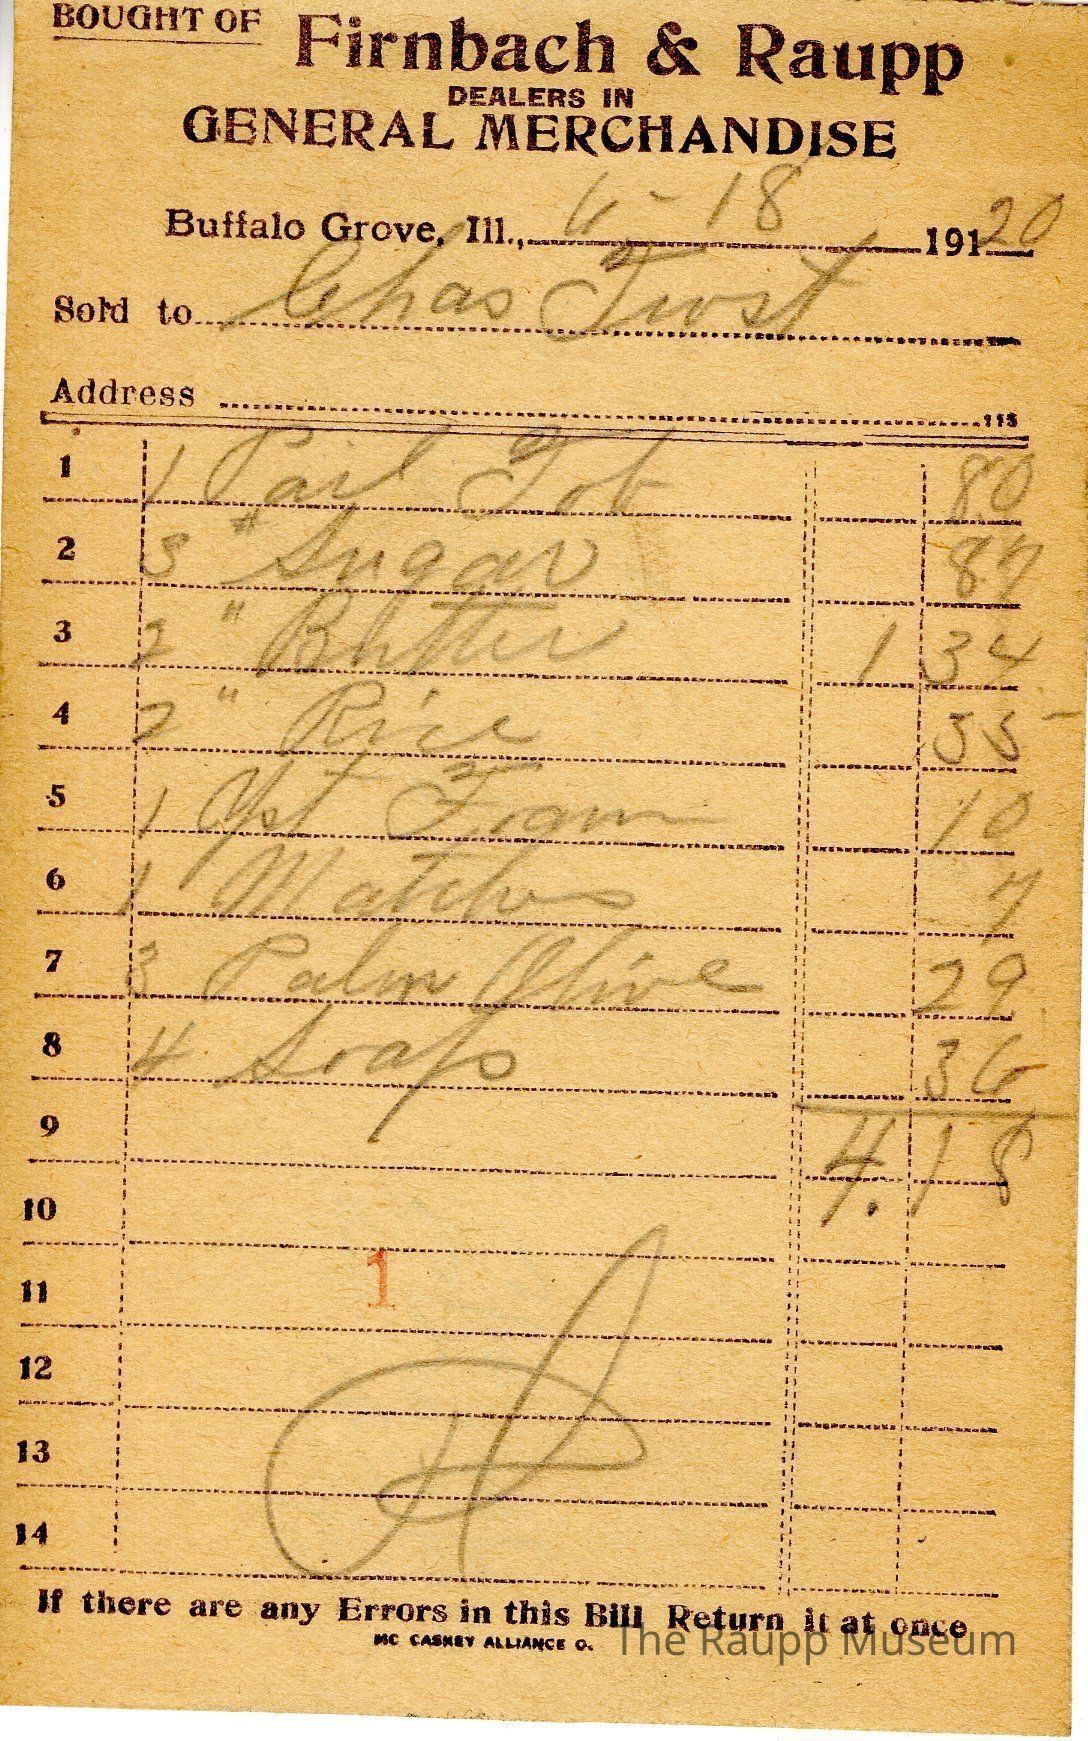 BOUGHT OF Firnbach & Raupp
DEALERS IN
GENERAL MERCHANDISE
Buffalo Grove, Ill., 6-18 191 20
Sold to Chas Trost
Address 113
1 1 Pail Tob 80
2 3 # Sugar 87
3 2 " Butter 1 34
4 2 " Rice 35
5 1 Yst Foam 10
6 1 Matches 7
7 3 Palm Olive 29
8 4 Soaps 36
9 4.18
10
11 1
12
13
14
If there are any Errors in this Bill Return it at once
MC CASKEY ALLIANCE O.
The Raupp Museum